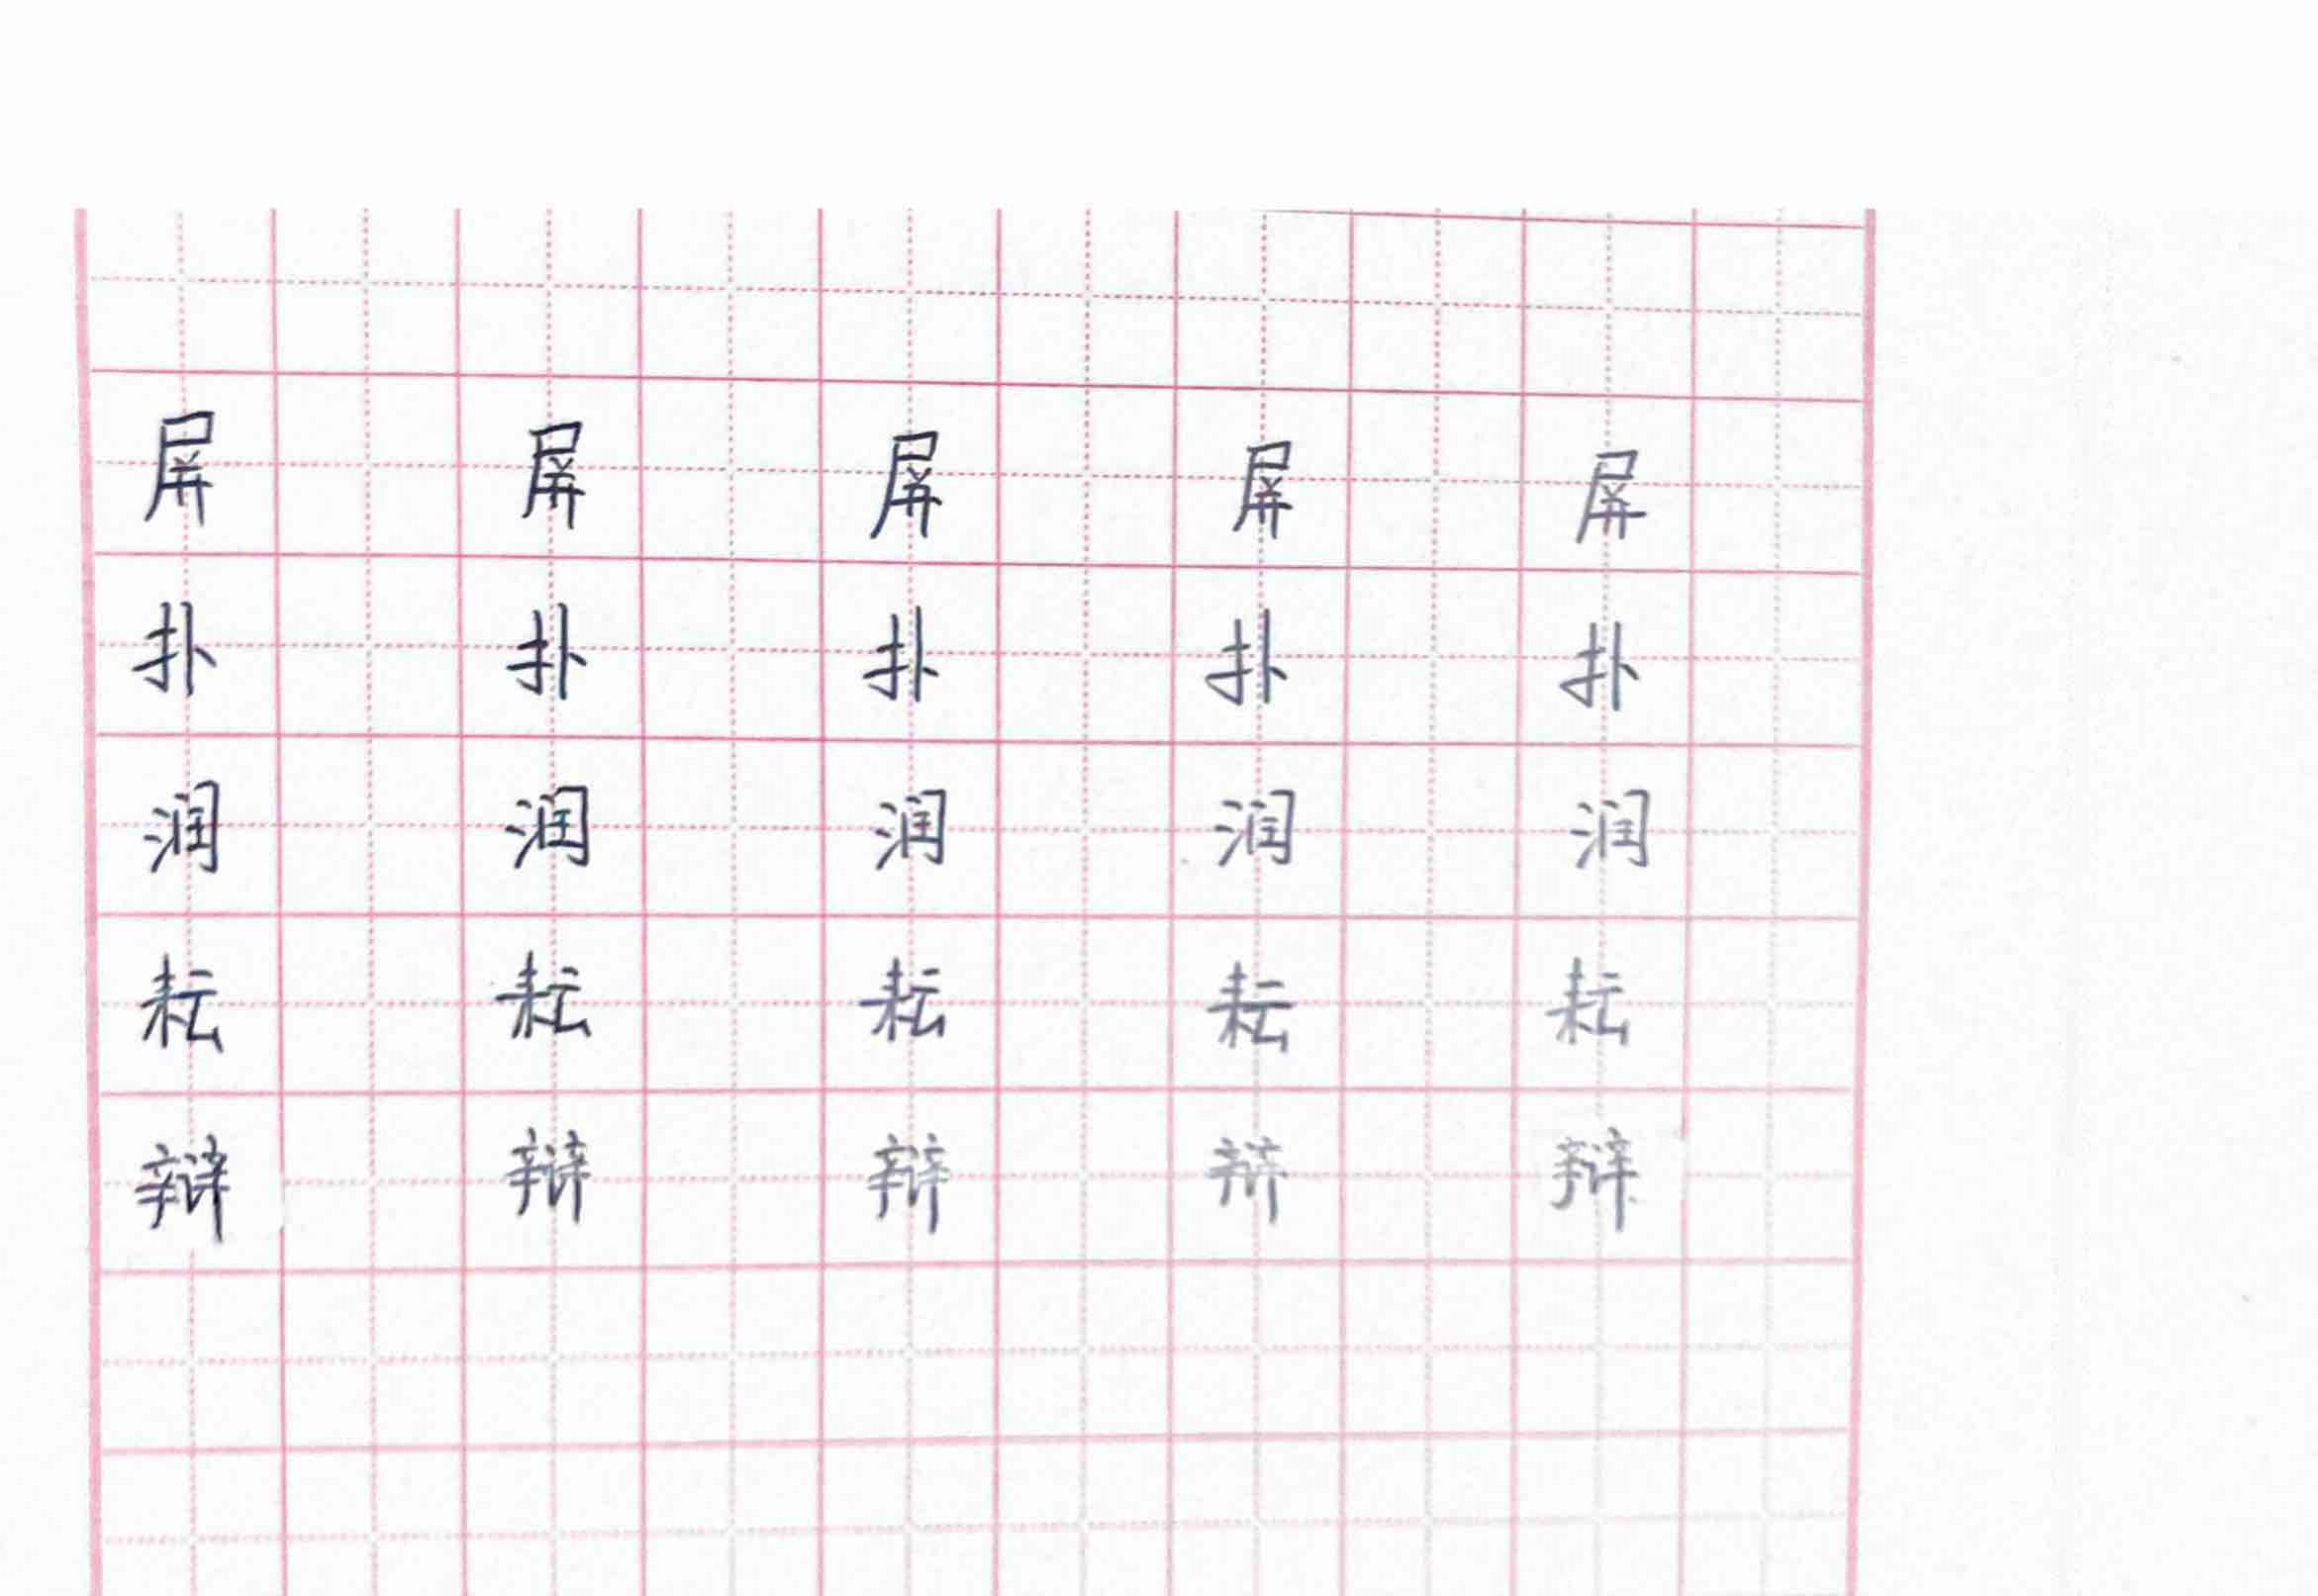 屏 屏 屏 屏 屏
扑 扑 扑 扑 扑
润 润 润 润 润
耘 耘 耘 耘 耘
辩 辩 辩 辩 辩